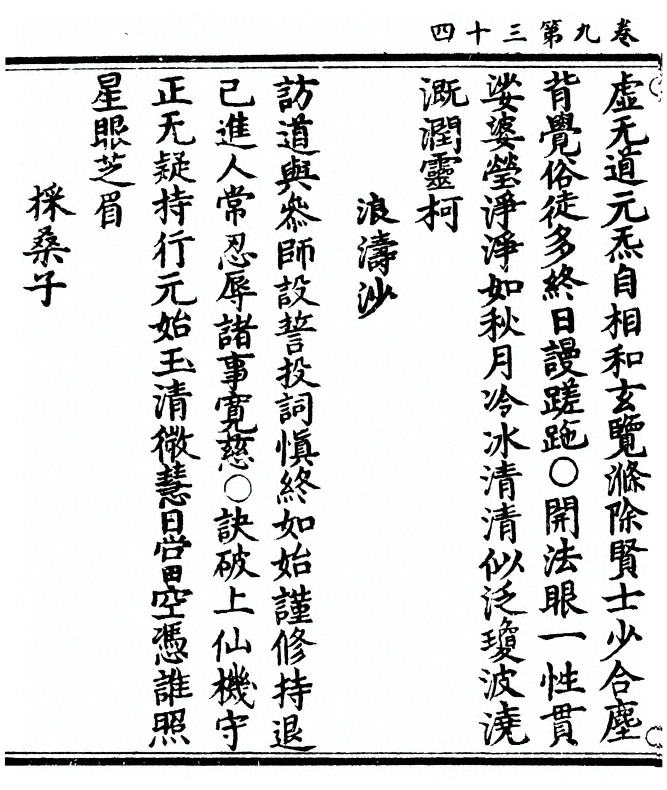 卷九第三十四
虛无道元炁自相和玄覽滌除賢士少合塵
背覺俗徒多終日謾蹉跎○開法眼一性貫
娑婆瑩淨淨如秋月冷冰清清似泛瓊波澆
溉潤靈柯
浪濤沙
訪道與叅師設誓投詞慎終如始謹修持退
己進人常忍辱諸事寬慈○訣破上仙機守
正无疑持行元始玉清微慧日當空憑誰照
星眼芝眉
採桑子